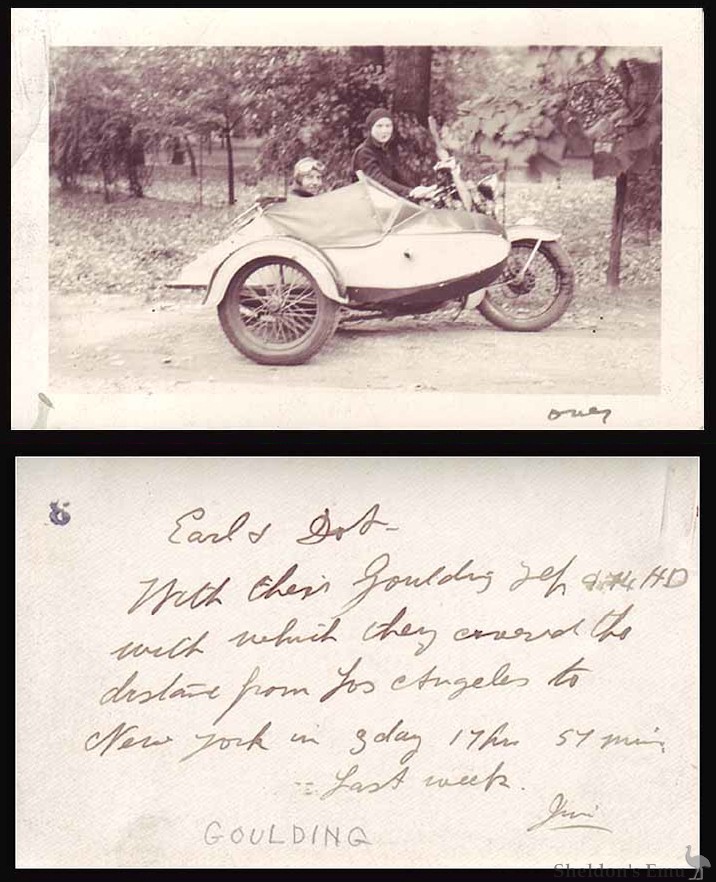 8
Earl & Dot-
With their Goulding HD
with which they covered the
distance from Los Angeles to
New York in 3 day 17 hr 57 min
Last week.
Jim
GOULDING
Sheldon's Emu